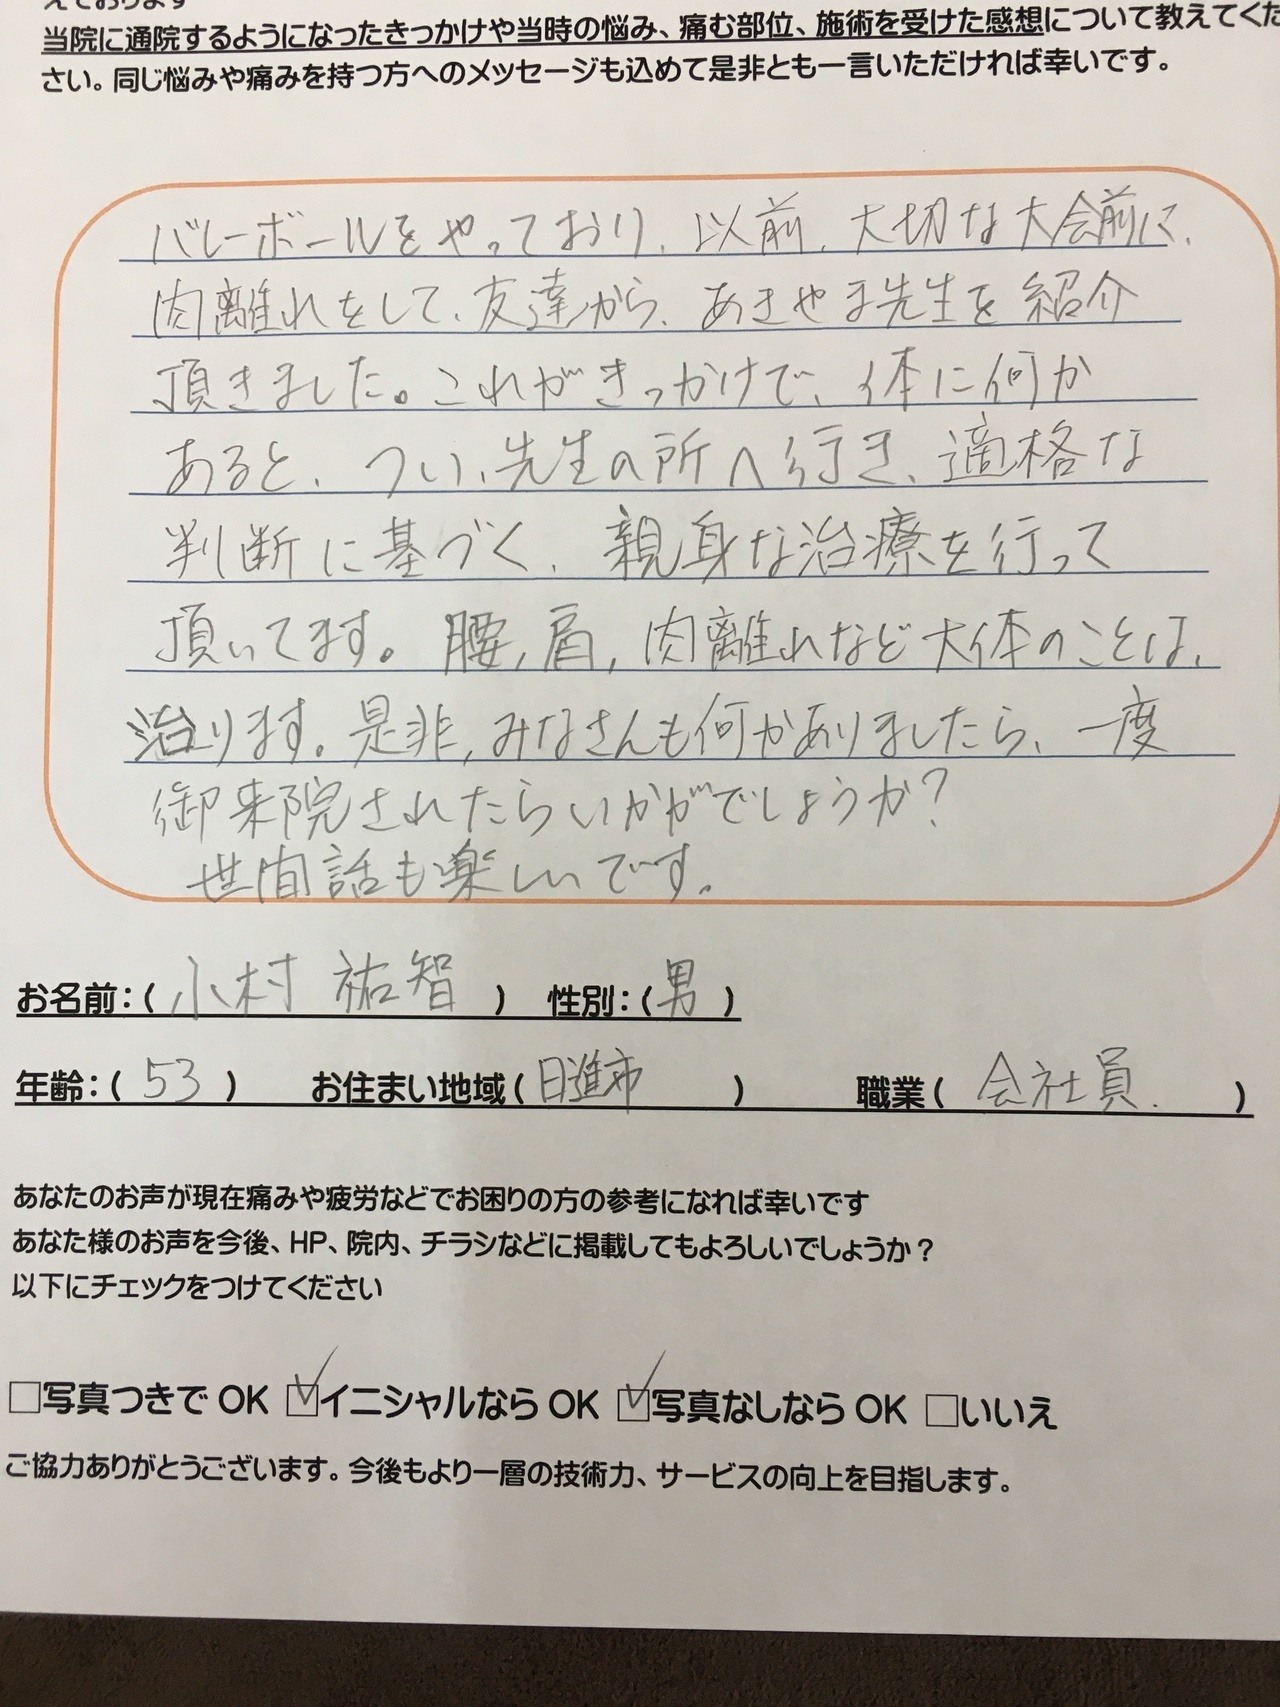 えております
当院に通院するようになったきっかけや当時の悩み、痛む部位、施術を受けた感想について教えてくだ
さい。同じ悩みや痛みを持つ方へのメッセージも込めて是非とも一言いただければ幸いです。
バレーボールをやっており、以前、大切な大会前に、
肉離れをして、友達から、あきやま先生を紹介
頂きました。これがきっかけで、体に何か
あると、つい、先生の所へ行き、適格な
判断に基づく、親身な治療を行って
頂いてます。腰,肩,肉離れなど大体のことは、
治ります。是非,みなさんも何かありましたら、一度
御来院されたらいかがでしょうか?
世間話も楽しいです。
お名前:( 小村 祐智 ) 性別:(男)
年齢:( 53 ) お住まい地域( 日進市 ) 職業( 会社員. )
あなたのお声が現在痛みや疲労などでお困りの方の参考になれば幸いです
あなた様のお声を今後、HP、院内、チラシなどに掲載してもよろしいでしょうか?
以下にチェックをつけてください
□写真つきで OK ☑イニシャルなら OK ☑写真なしなら OK □いいえ
ご協力ありがとうございます。今後もより一層の技術力、サービスの向上を目指します。